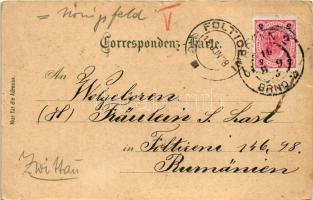 = Königsfeld
Correspondenz-Karte.
FOLTICENI
BRNO
An
Wolgeboren
(H) Fräulein S. Last
in Folticeni 146, 98.
Rumänien
Zwittau
Nur für die Adresse.